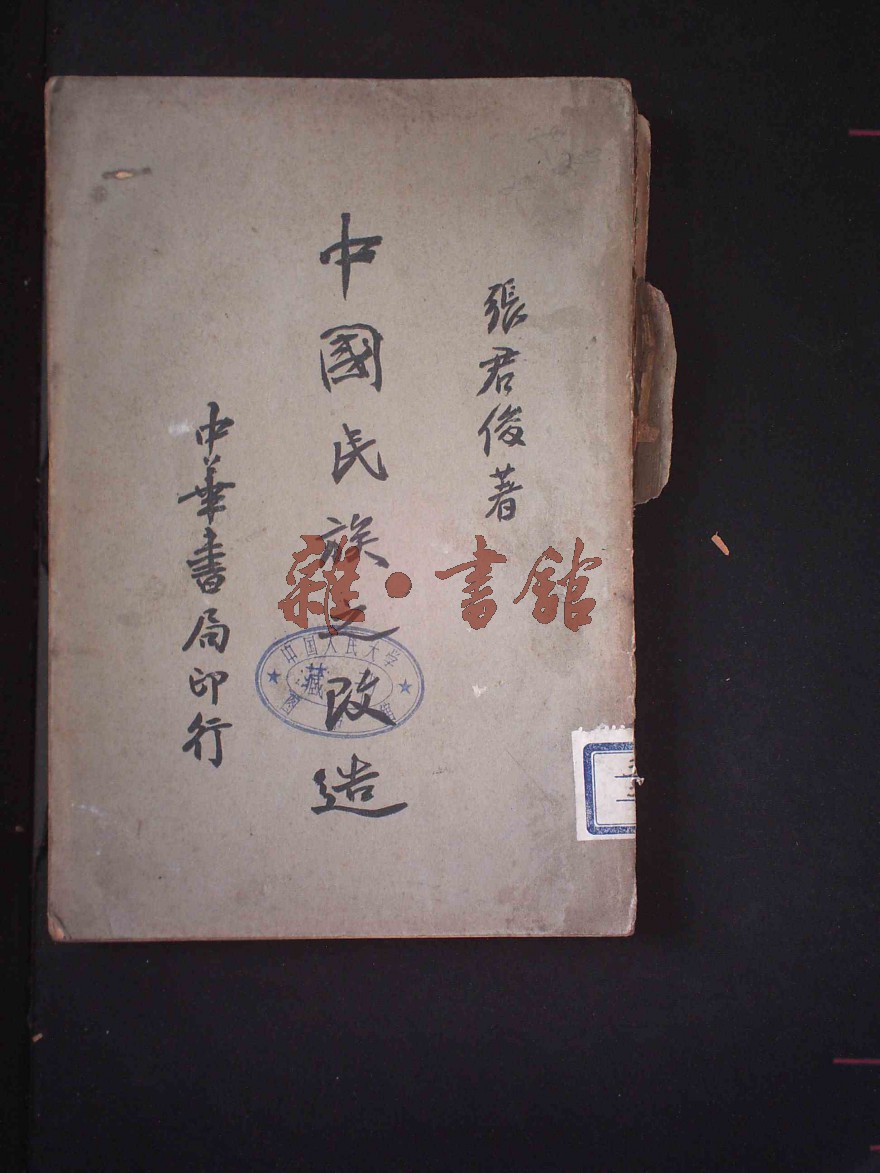 張君俊著
中國民族之改造
中華書局印行
雜·書館
中国人民大学
藏